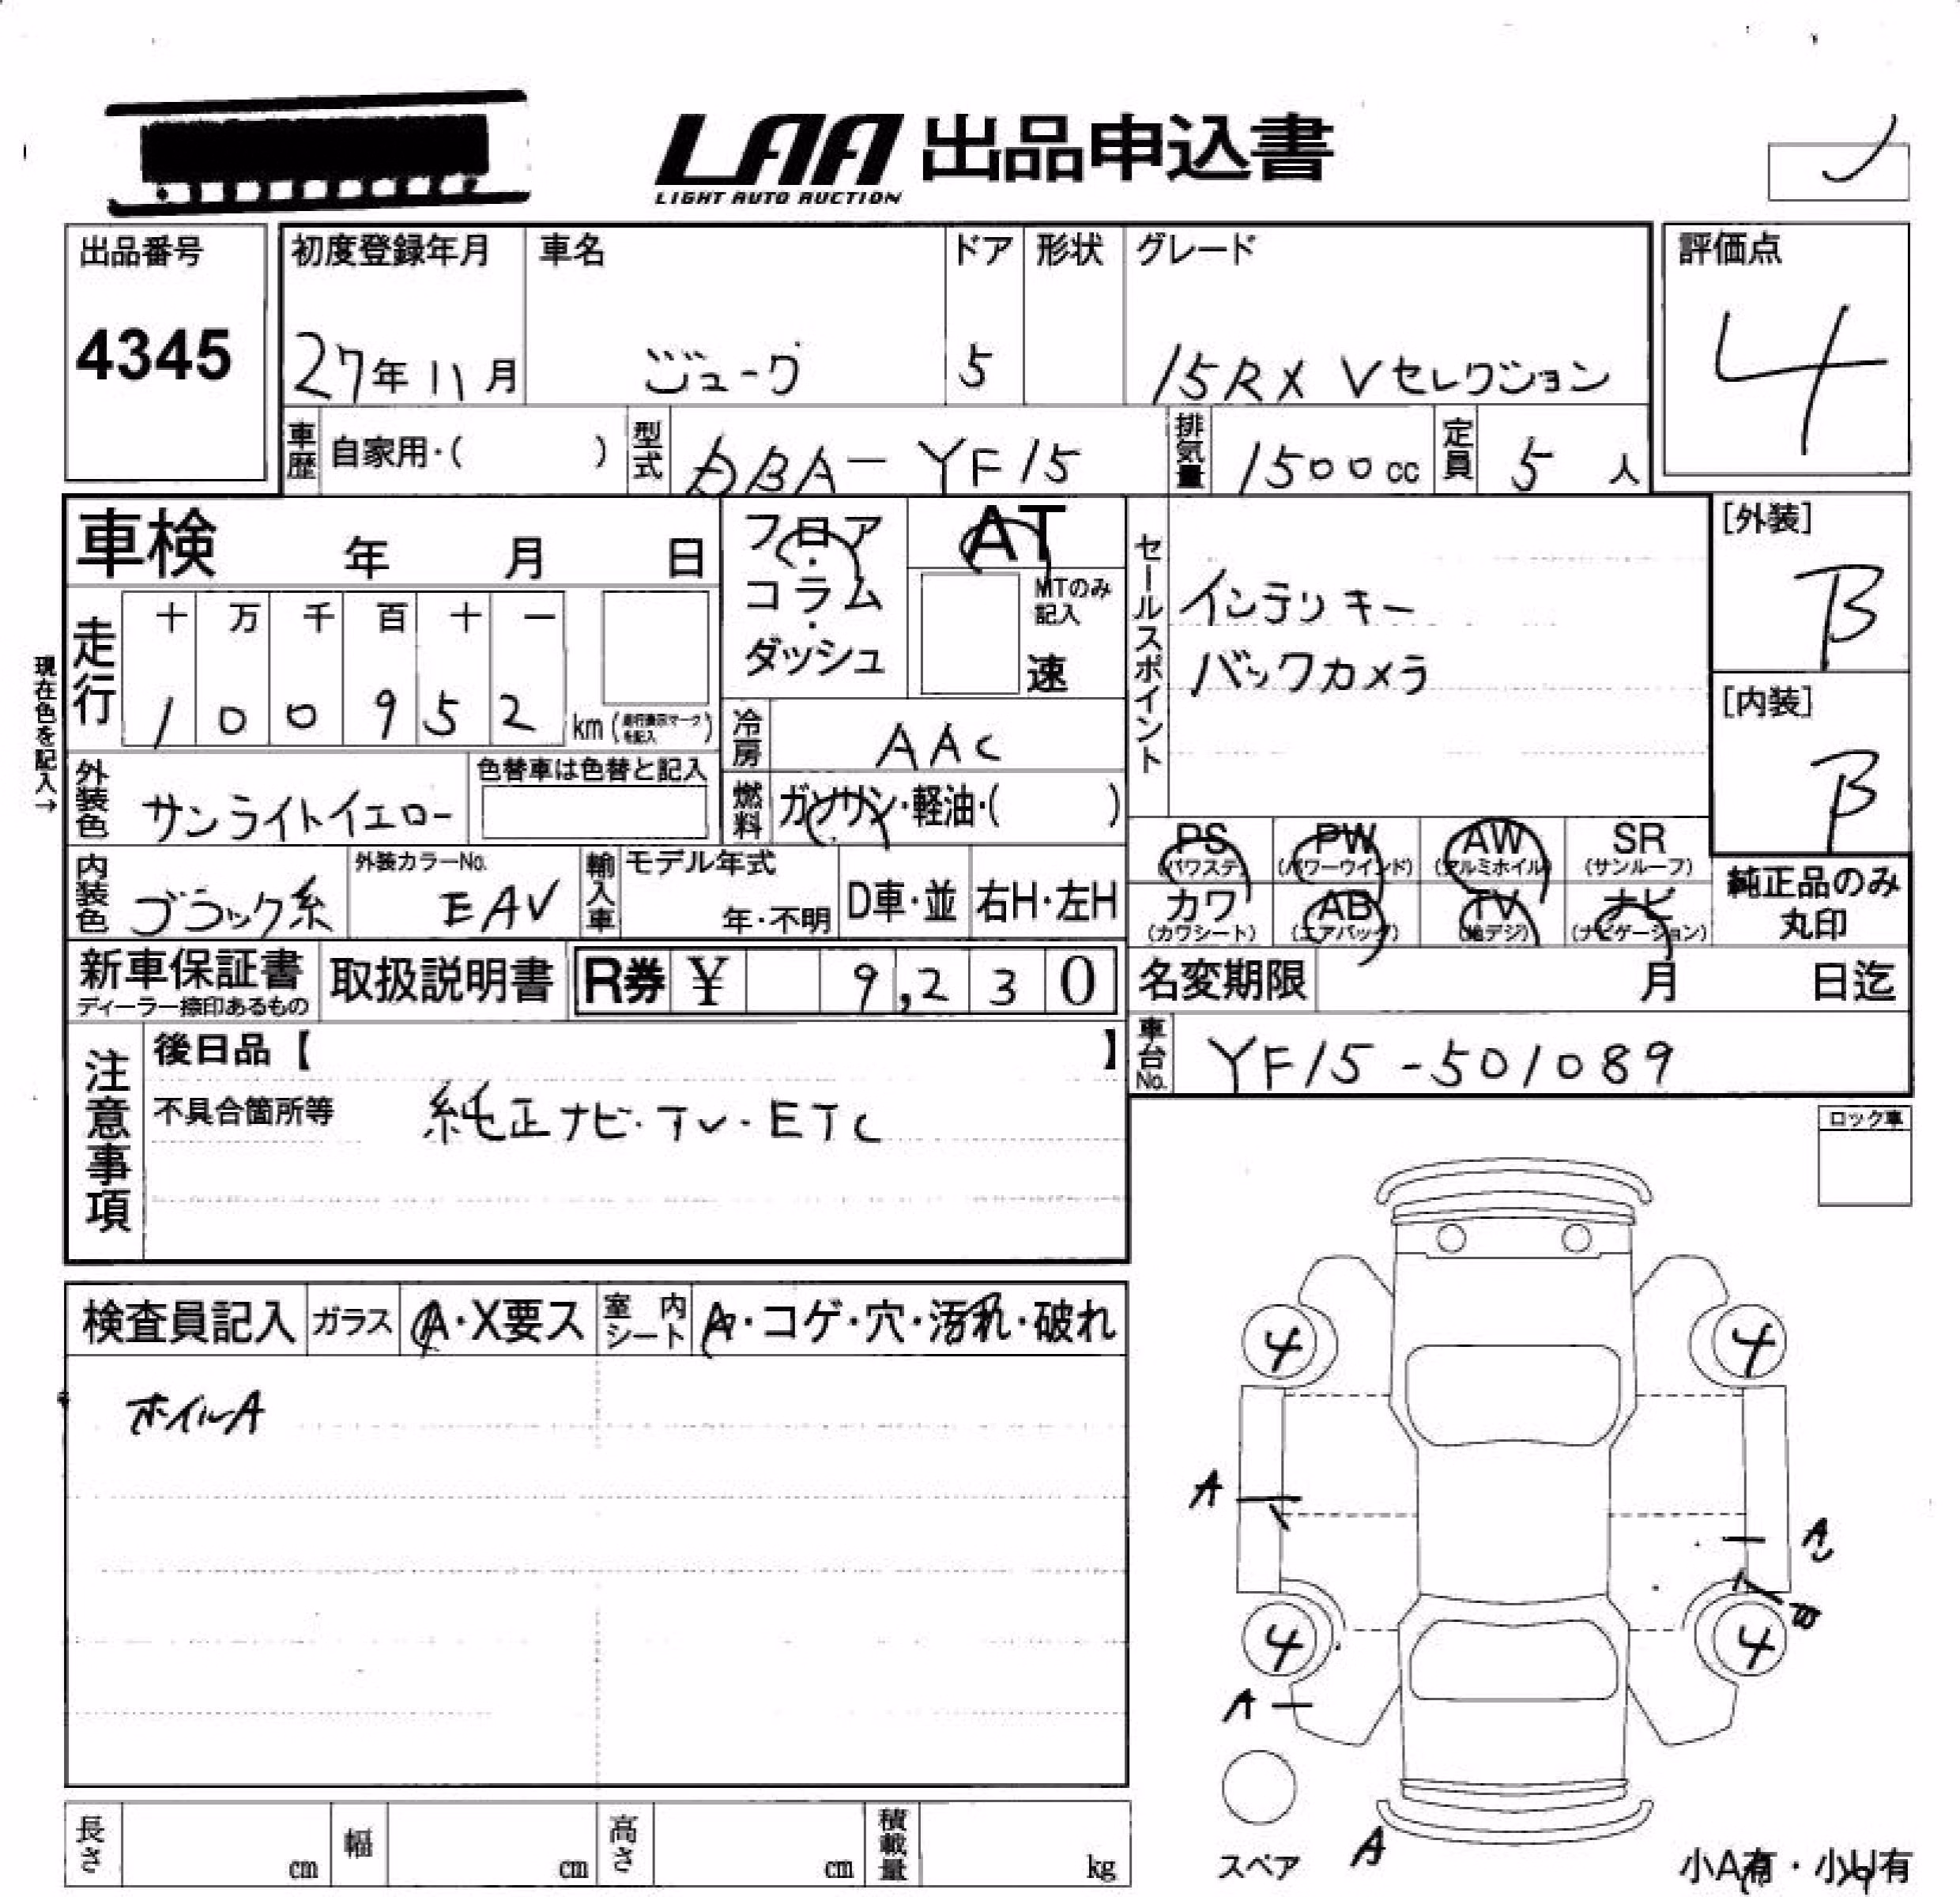 LAA 出品申込書
LIGHT AUTO AUCTION
出品番号 初度登録年月 車名 ドア 形状 グレード 評価点
4345 27年11月 ジューク 5 15RX Vセレクション 4
車歴 自家用・( ) 型式 DBA-YF15 排気量 1500cc 定員 5人
車検 年 月 日 フロア・コラム・ダッシュ AT
MTのみ記入 速
セールスポイント
インテリキー
バックカメラ
[外装]
B
[内装]
B
現在色を記入→
走行 十 万 千 百 十 一
1 0 0 9 5 2 km(走行表示マークを記入)
冷房 AAC
外装色 サンライトイエロー 色替車は色替と記入
燃料 ガソリン・軽油・( )
PS (パワステ) PW (パワーウインド) AW (アルミホイル) SR (サンルーフ)
カワ (カワシート) AB (エアバック) TV (地デジ) ナビ (ナビゲーション)
純正品のみ
丸印
内装色 ブラック系 外装カラーNo. EAV 輸入車 モデル年式 年・不明 D車・並 右H・左H
新車保証書 ディーラー捺印あるもの 取扱説明書 R券 ¥ 9,230 名変期限 月 日迄
車台No. YF15-501089
注意事項
後日品【 】
不具合箇所等 純正ナビ・TV・ETC
ロック車
検査員記入 ガラス A・X要ス 室内シート A・コゲ・穴・汚れ・破れ
ホイルA
4 4
A
A
B
4 4
A
スペア
A
小A有・小U有
長さ cm 幅 cm 高さ cm 積載量 kg